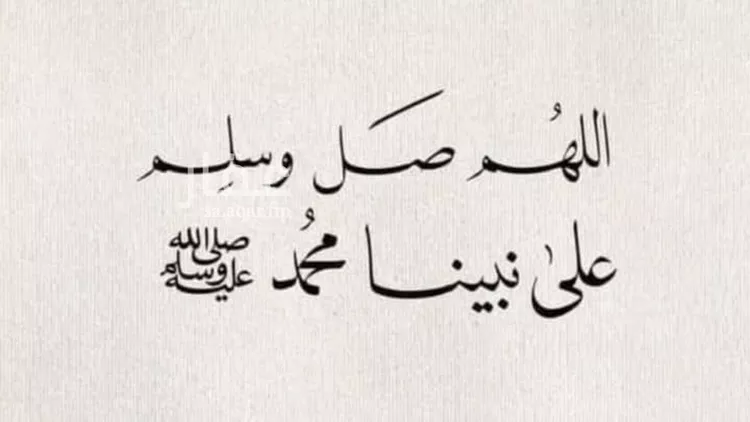 اللهُم صَل وسلِم
علىٰ نبينا محمُد ﷺ
عقار
sa.aqar.fm